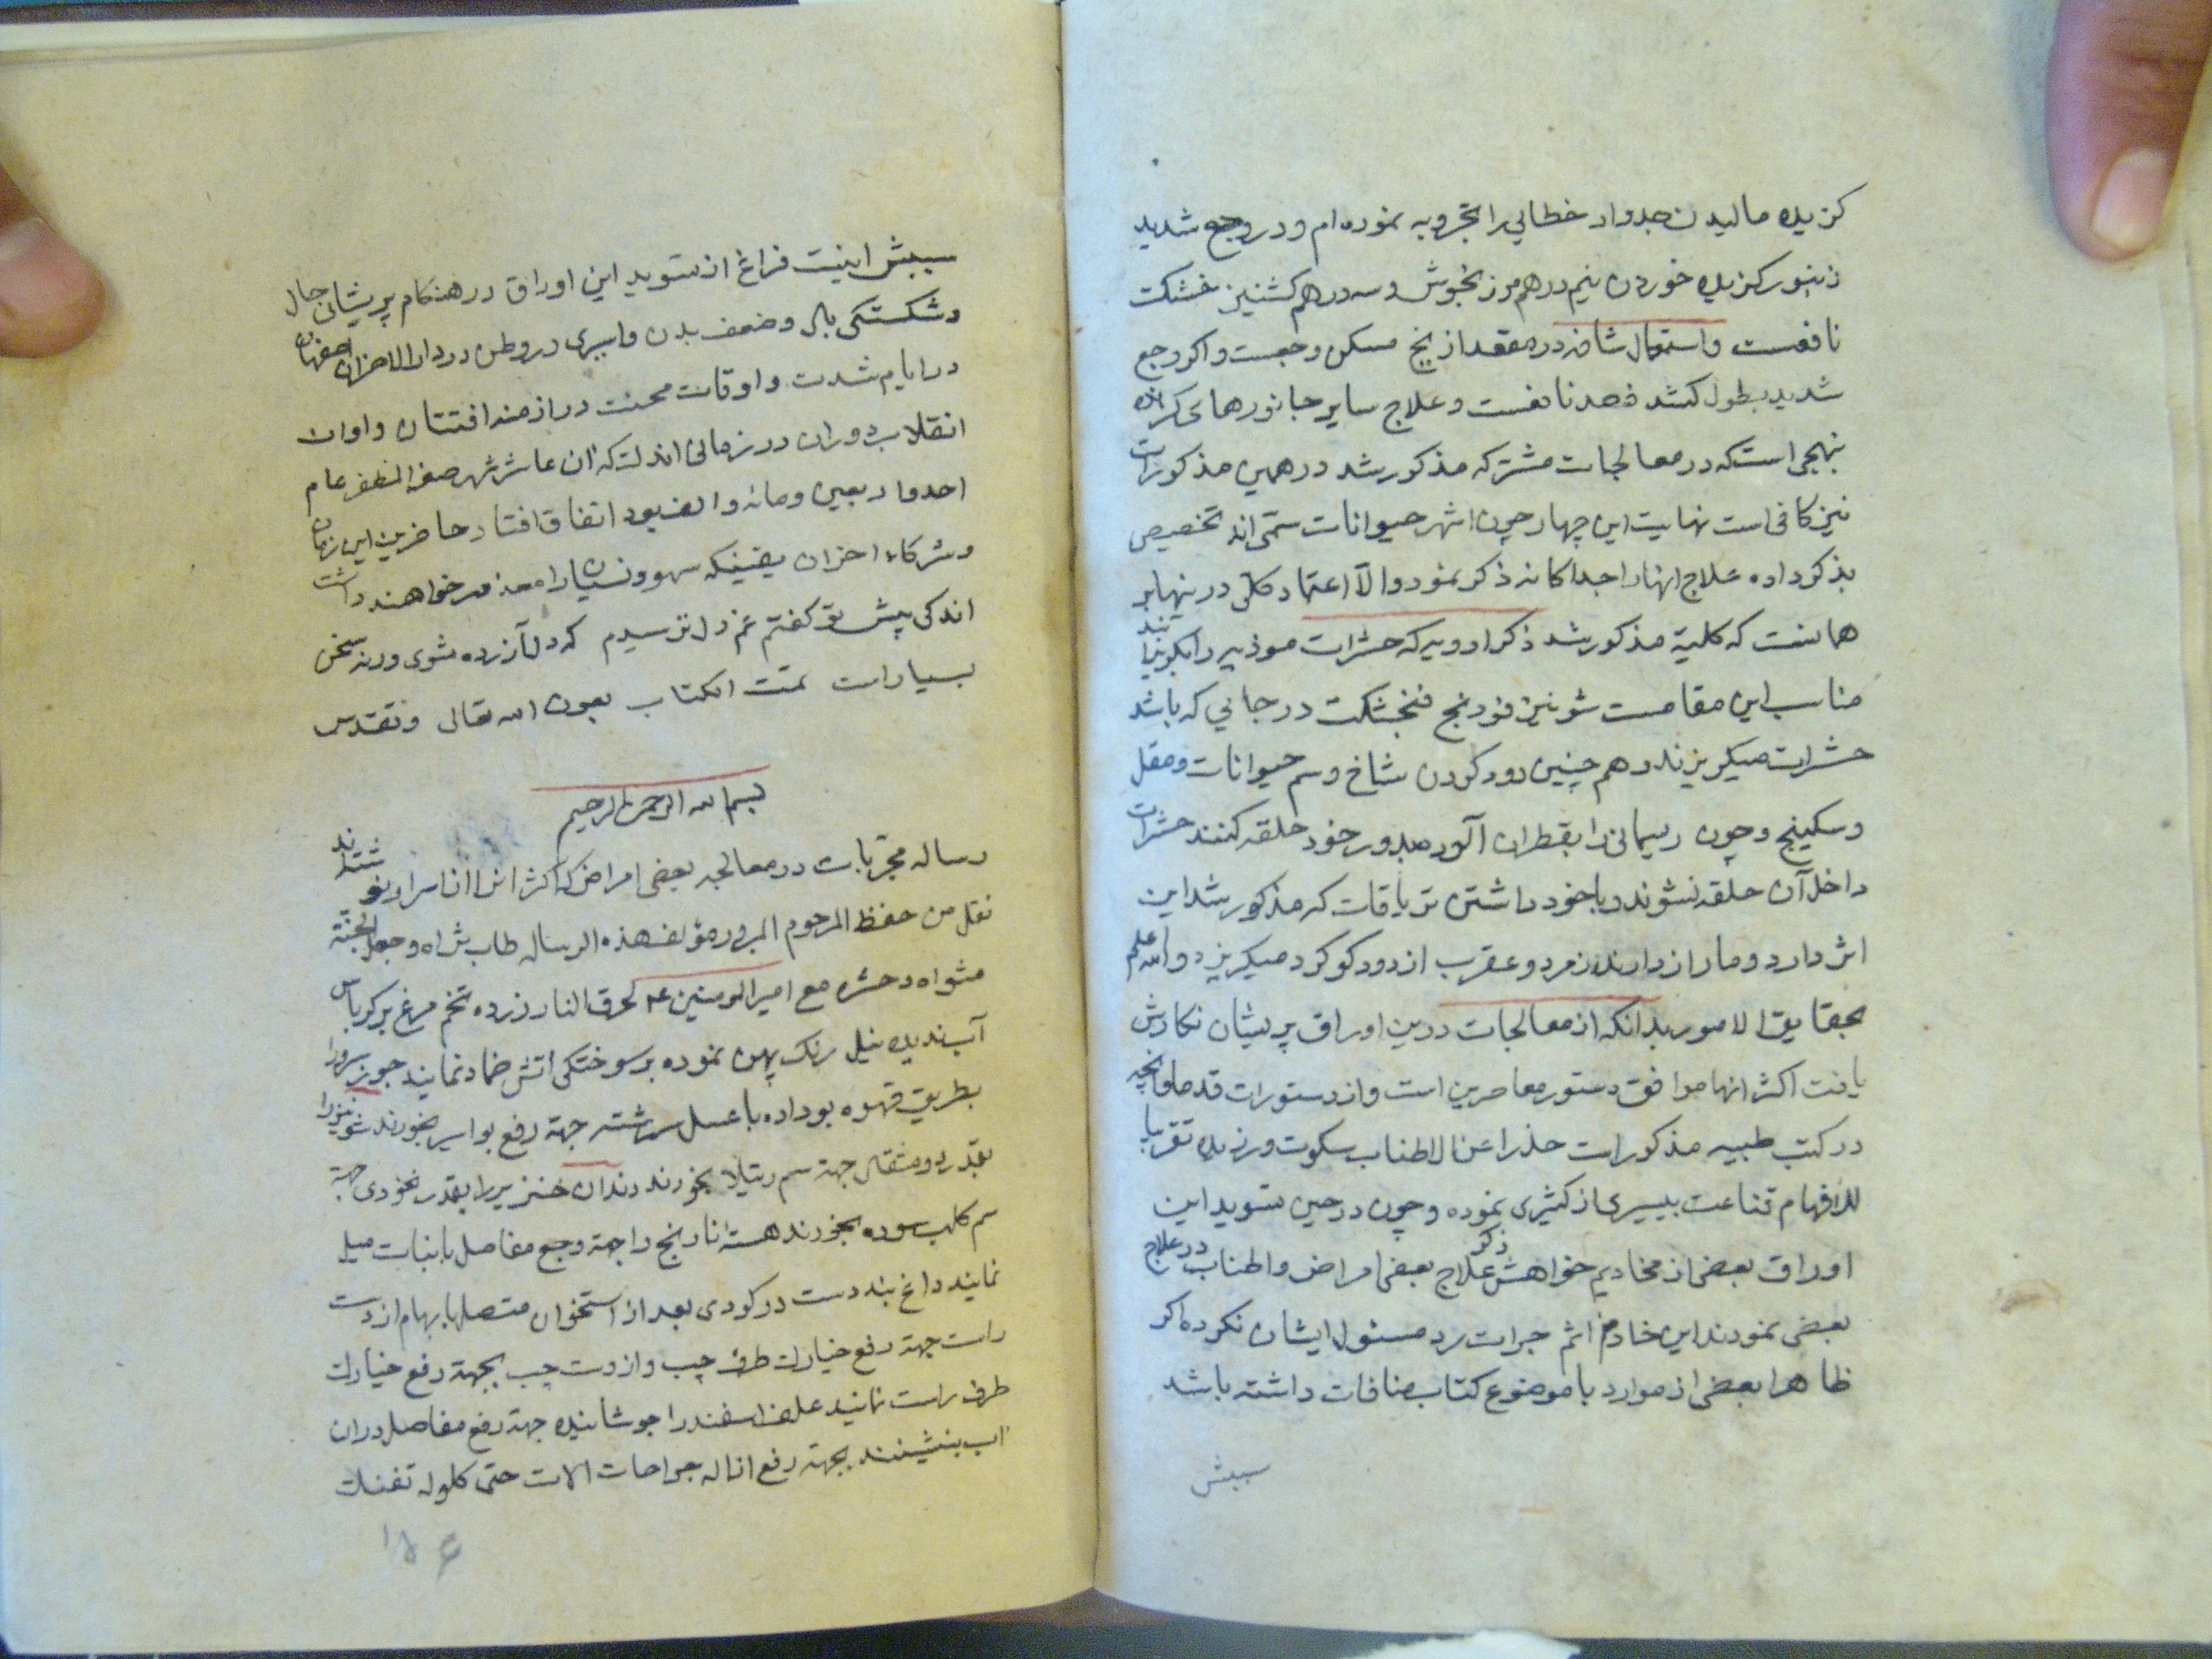 کزیده مالیدن جدوار خطایی را تجروبه نموده‌ام و در وجع شدید
زنبور کزیده خوردن نیم درهم مرزنجوش و سه درهم کشنیز خشکت
نافعست و استعمال شافه در مقعد از یخ مسکن وجعست و اکر وجع
شدید بطول کشد فصد نافعست و علاج سایر جانورهای کزنده
بنهجی است که در معالجات مشترکه مذکور شد در همین مذکورات
نیز کافی است نهایت این چهار چون اشهر حیوانات سمّی‌اند تخصیص
بذکر داده علاج انها را جداکانه ذکر نمود و الّا اعتماد کلی در نیها بر
همانست که کلیة مذکور شد ذکر ادویه که حشرات موذیه را بکریزانند
مناسب این مقامست شونیز فودنج فنجشکت در جایی که باشد
حشرات میکریزند و هم چنین دود کردن شاخ و سم حیوانات و مقل
و سکبینج و چون ریسمانی را بقطران آلوده بدور خود حلقه کنند حشرات
داخل آن حلقه نشوند و با خود داشتن تریاقات که مذکور شد این
اثر دارد و مار از دارنده زمرد و عقرب از دود کوکرد میکریزد و الله اعلم
بحقایق الامور بدانکه از معالجات درین اوراق پریشان نکارش
یافت اکثر انها موافق دستور معاصرین است و از دستورات قدما و انچه
در کتب طبیه مذکورات حذرا عن الاطناب سکوت ورزیده تقریبا
للافهام قناعت بیسیری از کثیری نموده و چون در حین تسوید این
اوراق بعضی از مخادیم خواهش ذکر علاج بعضی امراض و اطناب در علاج
بعضی نمودند این خادم اثم جرات رد مسئول ایشان نکرده اکر
ظاهرا بعضی از موارد با موضوع کتاب منافات داشته باشد
سببش
سببش اینست فراغ از تسوید این اوراق در هنکام پریشانی حال
و شکستکی بال و ضعف بدن و اسیری در وطن در دار الاحزان اصفهان
در ایام شدت و اوقات محنت در ازمنه افتتان و اوان
انقلاب دوران در زمانی انذلت که ان عاشر شهر صفر المظفر عام
احد و اربعین و مائه و الف بود اتفاق افتاد حاضرین این زمان
و شرکاء احزان یقینیکه سهو و نسیان را معذور خواهند داشت
اندکی پیش تو کفتم غم دل ترسیدم که دل آزرده شوی ورنه سخن
بسیارست تمت الکتاب بعون الله تعالی و تقدس
بسم الله الرحمن الرحیم
رساله مجرّبات در معالجه بعضی امراض که اکثر اش از اسرار نوشته‌اند
نقل من حفظ المرحوم المبرور مؤلف هذه الرساله طاب ثراه و جعل الجنة
مثواه و حشره مع امیرالمومنین ع م لحرق النار زرده تخم مرغ بر کرباس
آب ندیده نیل رنک پهن نموده بر سوختکی اتش ضماد نمایند جوز سرو را
بطریق قهوه بو داده با عسل سرشته جهة رفع بواسیر بخورند شونیز را
بقدر دو مثقال جهة سم رتیلا بخورند دندان خنزیر را بقدر نخودی جهة
سم کلب سوده بخورند هسته نارنج را جهة وجع مفاصل با نبات میل
نمایند داغ بند دست در کودی بعد از استخوان متصل بابهام از دست
راست جهة رفع خیارت طرف چپ و از دست چپ بجهة رفع خیارت
طرف راست نمایند علف اسفند را جوشانیده جهة رفع مفاصل در ان
اب بنشینند بجهة رفع ازاله جراحات الات حتی کلوله تفنک
۱۸۶